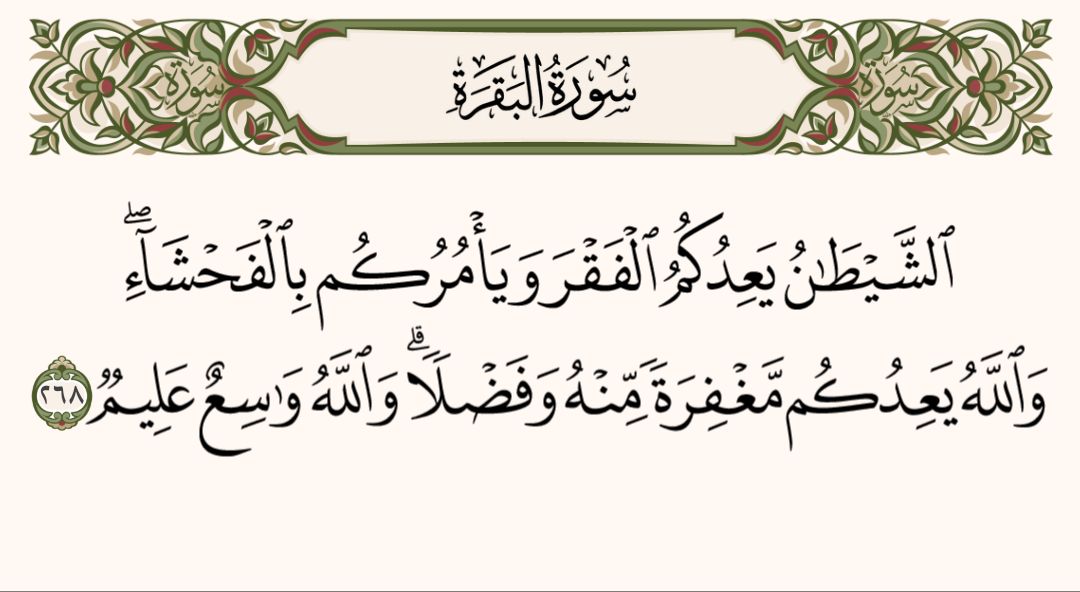 سُورَةُ البَقَرَةِ
سُورَة
سُورَة
ٱلشَّيۡطَٰنُ يَعِدُكُمُ ٱلۡفَقۡرَ وَيَأۡمُرُكُم بِٱلۡفَحۡشَآءِۖ
وَٱللَّهُ يَعِدُكُم مَّغۡفِرَةٗ مِّنۡهُ وَفَضۡلٗاۗ وَٱللَّهُ وَٰسِعٌ عَلِيمٞ ٢٦٨